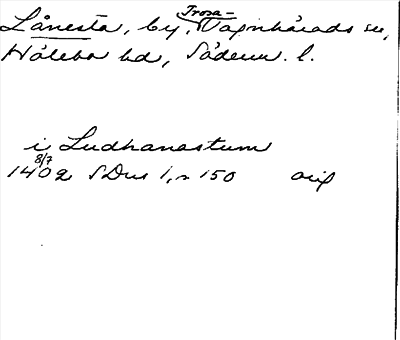 Lånesta, by, Trosa-Vagnhärads sn,
Hölebo hd, Söderm. l.
i Ludhanastum
1402 8/7 SDns 1, s 150 orig